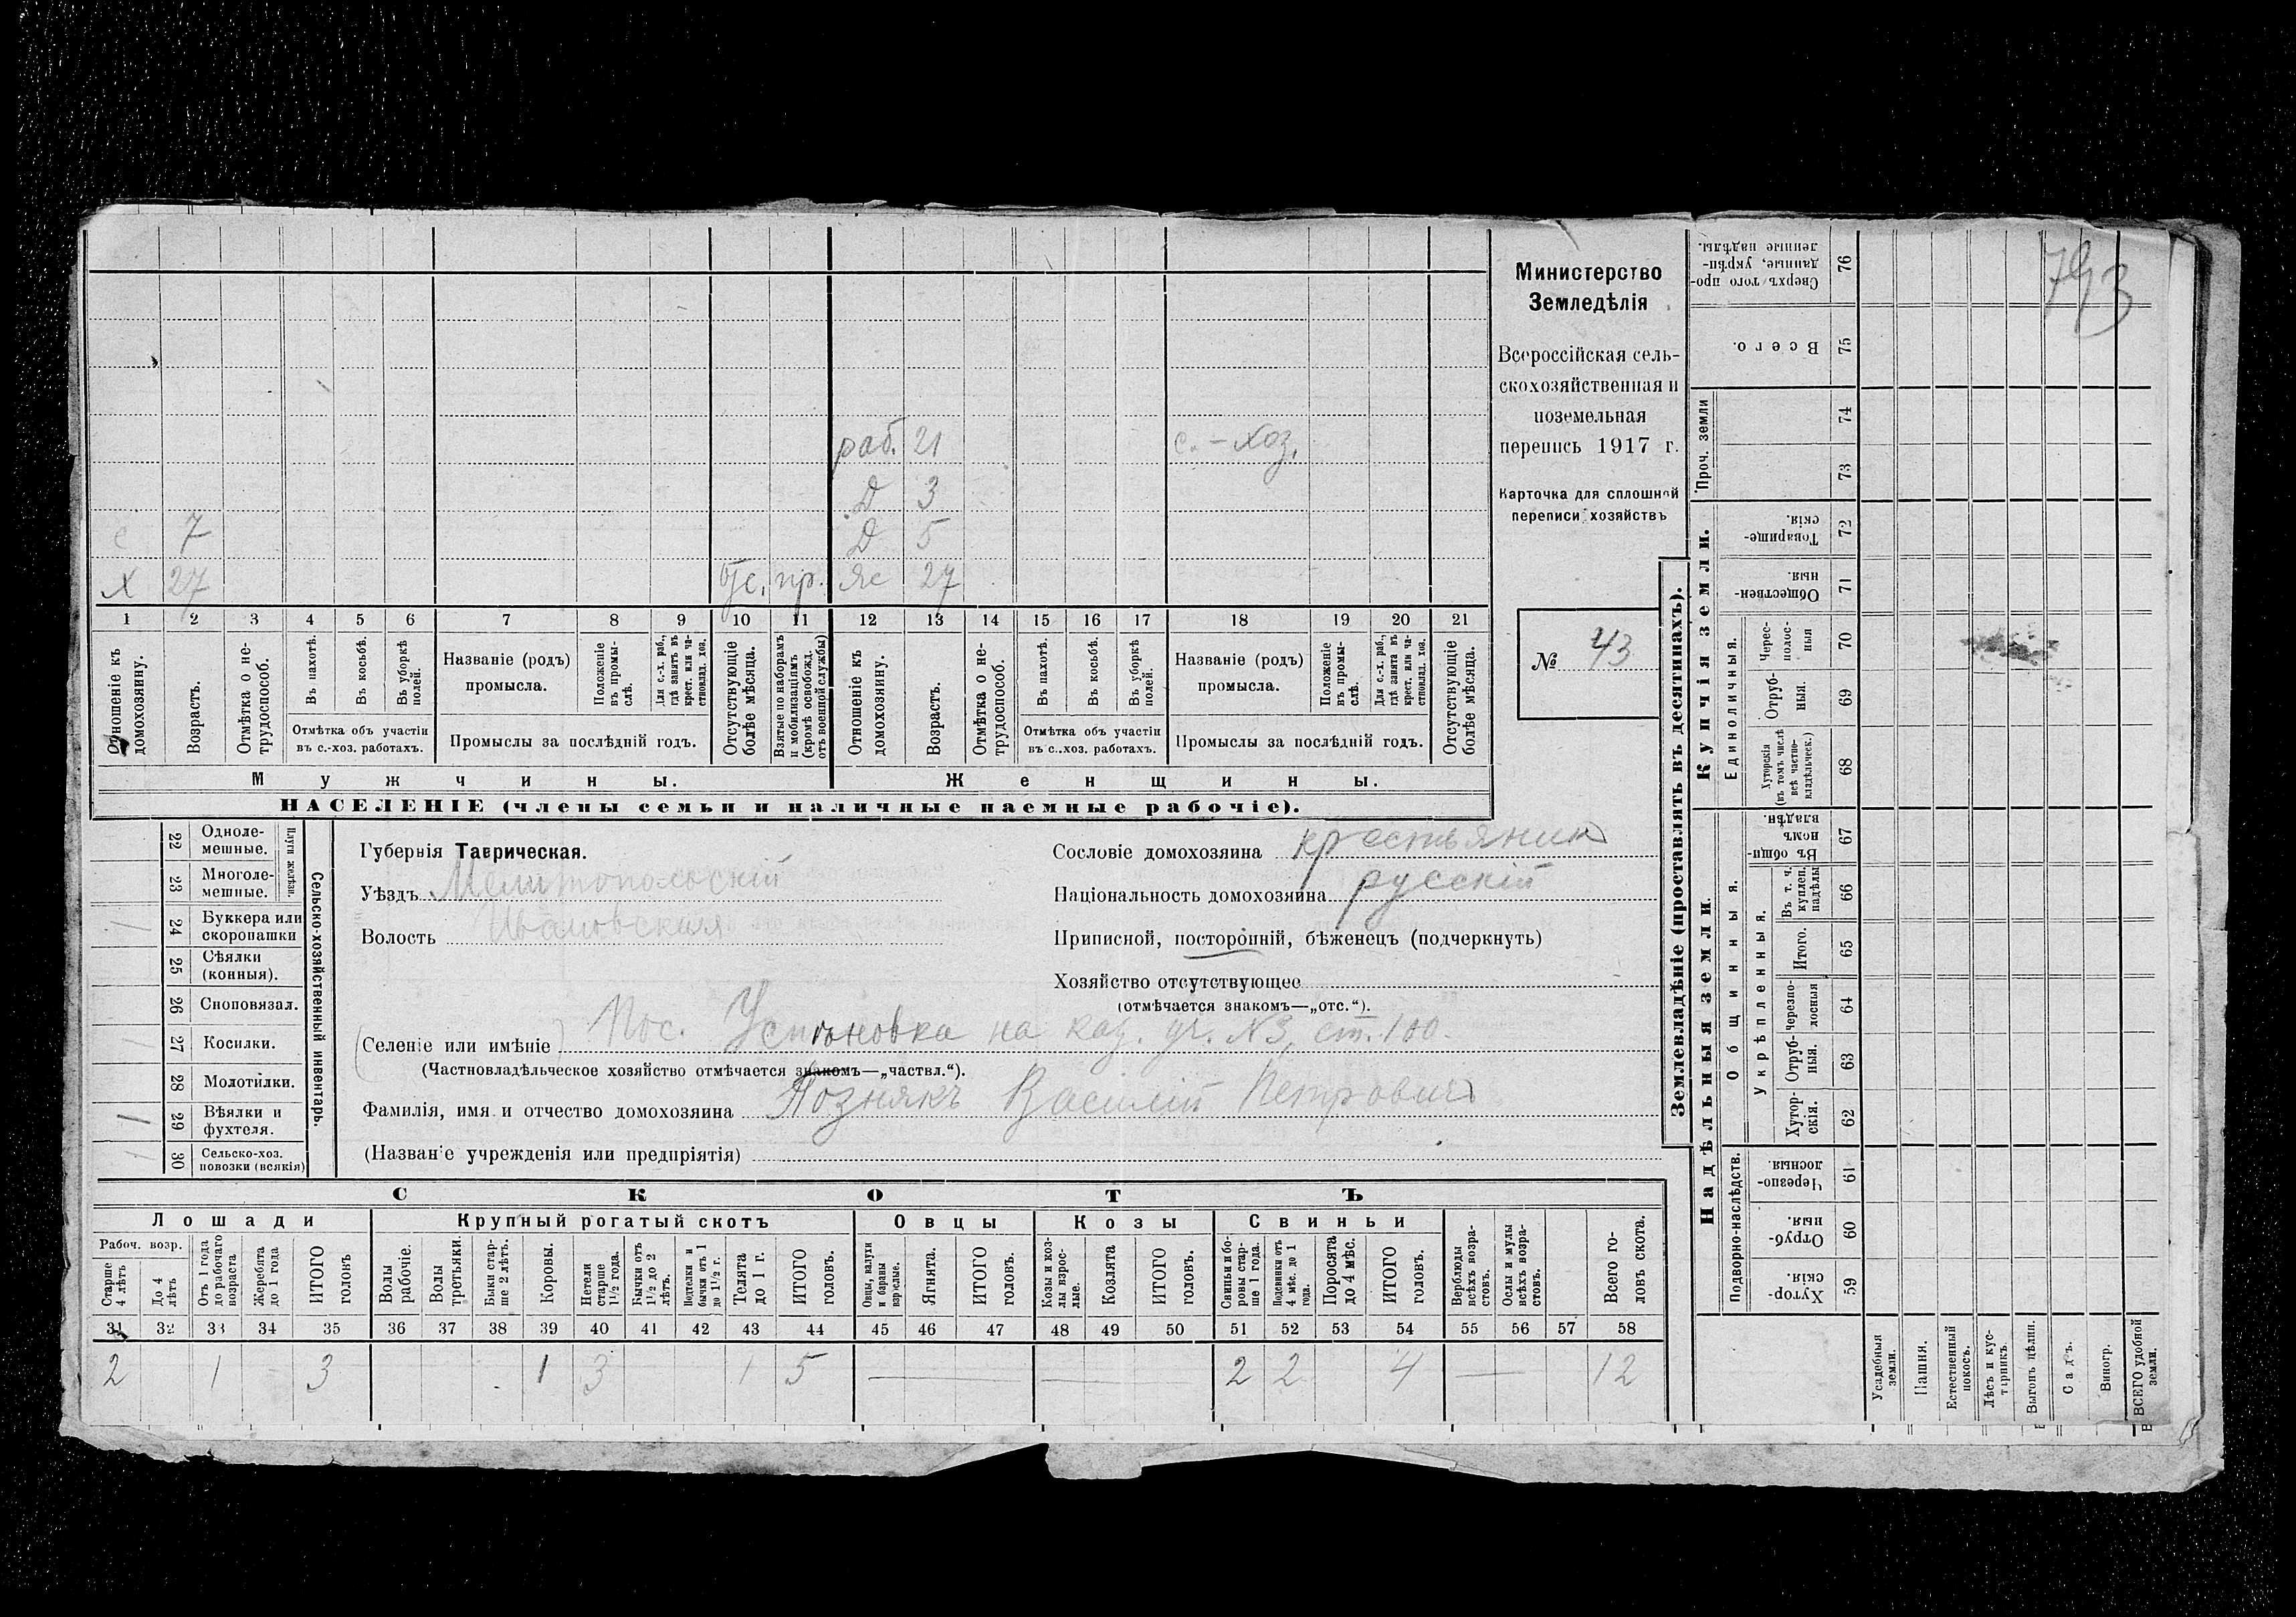 793
Министерство
Земледѣлія
Всероссійская сель-
скохозяйственная и
поземельная
перепись 1917 г.
Карточка для сплошной
переписи хозяйствъ
№ 43
раб. 21 с.-хоз.
Д 3
с 7 Д 5
х 27 пр. 27
1 2 3 4 5 6 7 8 9 10 11 12 13 14 15 16 17 18 19 20 21
Отношеніе къ домохозяину.
Возрастъ.
Отмѣтка о не-трудоспособ.
Въ пахотѣ.
Въ косьбѣ.
Въ уборкѣ полей.
Отмѣтка объ участіи
въ с.-хоз. работахъ.
Названіе (родъ)
промысла.
Положеніе въ промы-слѣ.
Для с.-х. раб., гдѣ занятъ въ крест. или ча-стновлад. хоз.
Промыслы за послѣдній годъ.
Отсутствующіе болѣе мѣсяца.
Взятые по наборамъ и мобилизаціямъ (кромѣ освобожд. отъ военной службы)
Отношеніе къ домохозяину.
Возрастъ.
Отмѣтка о не-трудоспособ.
Въ пахотѣ.
Въ косьбѣ.
Въ уборкѣ полей.
Отмѣтка объ участіи
въ с..хоз. работахъ.
Названіе (родъ)
промысла.
Положеніе въ промы-слѣ.
Для с.-х. раб., гдѣ занята въ крест. или ча-стновлад. хоз.
Промыслы за послѣдній годъ.
Отсутствующіе болѣе мѣсяца.
Мужчины. Женщины.
НАСЕЛЕНІЕ (члены семьи и наличные наемные рабочіе).
Сельско-хозяйственный инвентарь.
Плуги желѣзн.
22 Одноле-мешные.
23 Многоле-мешные.
/ 24 Буккера или скоропашки
25 Сѣялки (конныя).
26 Сноповязал.
/ 27 Косилки.
28 Молотилки.
1 29 Вѣялки и фухтеля.
1 30 Сельско-хоз. повозки (всякія)
Губернія Таврическая.
Уѣздъ Мелитопольскій
Волость Ивановская
Сословіе домохозяина крестьянин
Національность домохозяина русскій
Приписной, посторонній, бѣженецъ (подчеркнуть)
Хозяйство отсутствующее
(отмѣчается знакомъ—„отс.“).
Селеніе или имѣніе Пос. Устиновка на каз. уч. N3, ст. 100.
(Частновладѣльческое хозяйство отмѣчается знакомъ—„частвл.“).
Фамилія, имя и отчество домохозяина Познякъ Василій Петрович
(Названіе учрежденія или предпріятія)
СКОТЪ
Лошади Крупный рогатый скотъ Овцы Козы Свиньи
Рабоч. возр.
Старше 4 лѣтъ
До 4 лѣтъ
Отъ 1 года до рабочаго возраста
Жеребята до 1 года
ИТОГО головъ
Волы рабочіе.
Волы третьяки.
Быки стар-ше 2 лѣтъ.
Коровы.
Нетели старше 1½ года.
Бычки отъ 1½ до 2 лѣтъ.
Подтелки и бычки отъ 1 до 1½ г.
Телята до 1 г.
ИТОГО головъ.
Овцы, валухи и бараны взрослые.
Ягнята.
ИТОГО головъ.
Козы и коз-лы взрос-лые.
Козлята
ИТОГО головъ.
Свиньи и бо-ровы стар-ше 1 года.
Подсвинки отъ 4 мѣс. до 1 года.
Поросята до 4 мѣс.
ИТОГО головъ.
Верблюды всѣхъ возра-стовъ.
Ослы и мулы всѣхъ возра-стовъ.
Всего го-ловъ скота.
31 32 33 34 35 36 37 38 39 40 41 42 43 44 45 46 47 48 49 50 51 52 53 54 55 56 57 58
2 1 - 3 1 3 1 5 — — 2 2 4 — 12
Землевладѣніе (проставлять въ десятинахъ).
Купчія земли.
Надѣльныя земли.
Проч. земли
Единоличныя.
Общинныя.
Укрѣпленныя.
Подворно-наслѣдств.
Сверхъ того про-данные, укрѣп-ленные надѣлы. 76
Всего. 75
74
73
Товарище-скія. 72
Обществен-ныя. 71
Черес-полос-ныя 70
Отруб-ныя. 69
Хуторскія (въ томъ числѣ всѣ частно-владѣльческ.) 68
Въ общи-номъ владѣн. 67
Въ т. ч. куплен. надѣлы 66
Итого. 65
Черезпо-лосныя 64
Отруб-ныя. 63
Хутор-скія. 62
Черезпо-лосныя 61
Отруб-ныя. 60
Хутор-скія. 59
Усадебныя земли.
Пашня.
Естественный покосъ.
Лѣсъ и кус-тарникъ.
Выгонъ цѣлин.
Садъ.
Виногр.
ВСЕГО удобной земли.